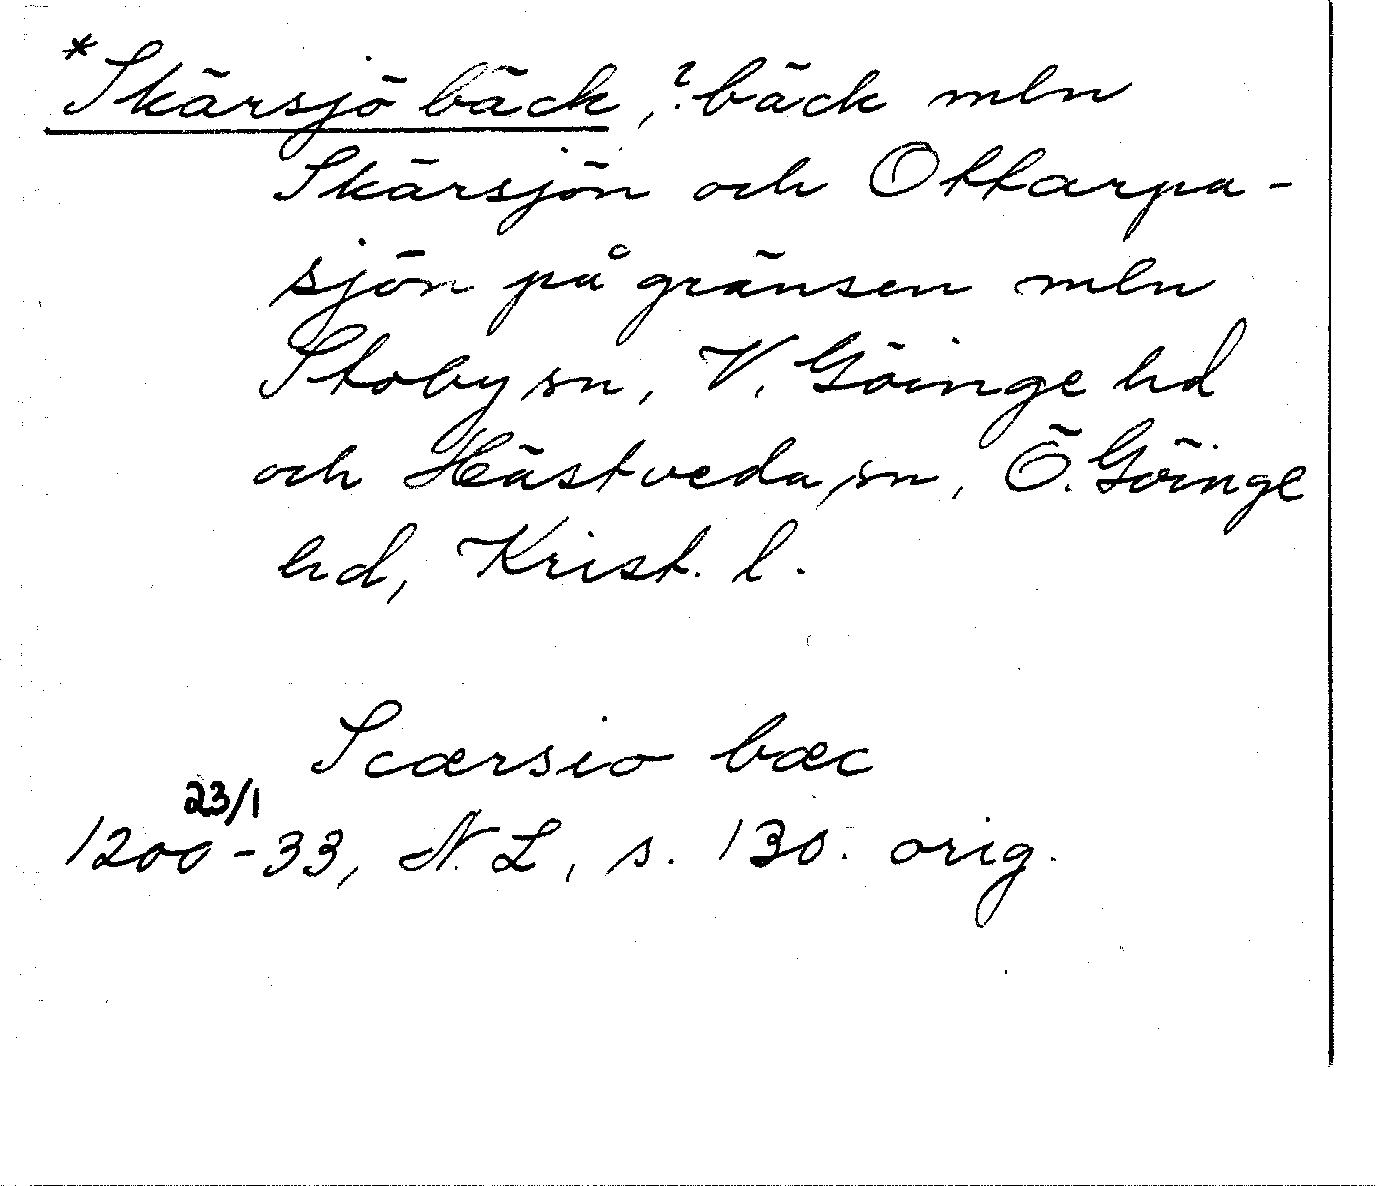 *Skärsjö bäck, ? bäck mln
Skärsjön och Ottarpa-
sjön på gränsen mln
Stoby sn, V. Göinge hd
och Hästveda sn, Ö. Göinge
hd, Krist. l.
Scærsio bæc
23/1
1200-33, N. L, s. 130. orig.